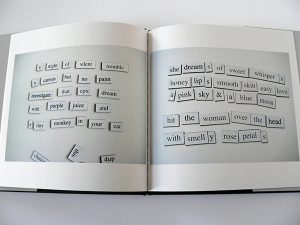 a night of silent tremble
a canvas but no paint
investigate that epic dream
with purple juice and
a tiny monkey in your ear
she dream s of sweet whisper s
honey lip s smooth skin easy love
a pink sky & a blue moon
hit the woman over the head
with smell y rose petal s